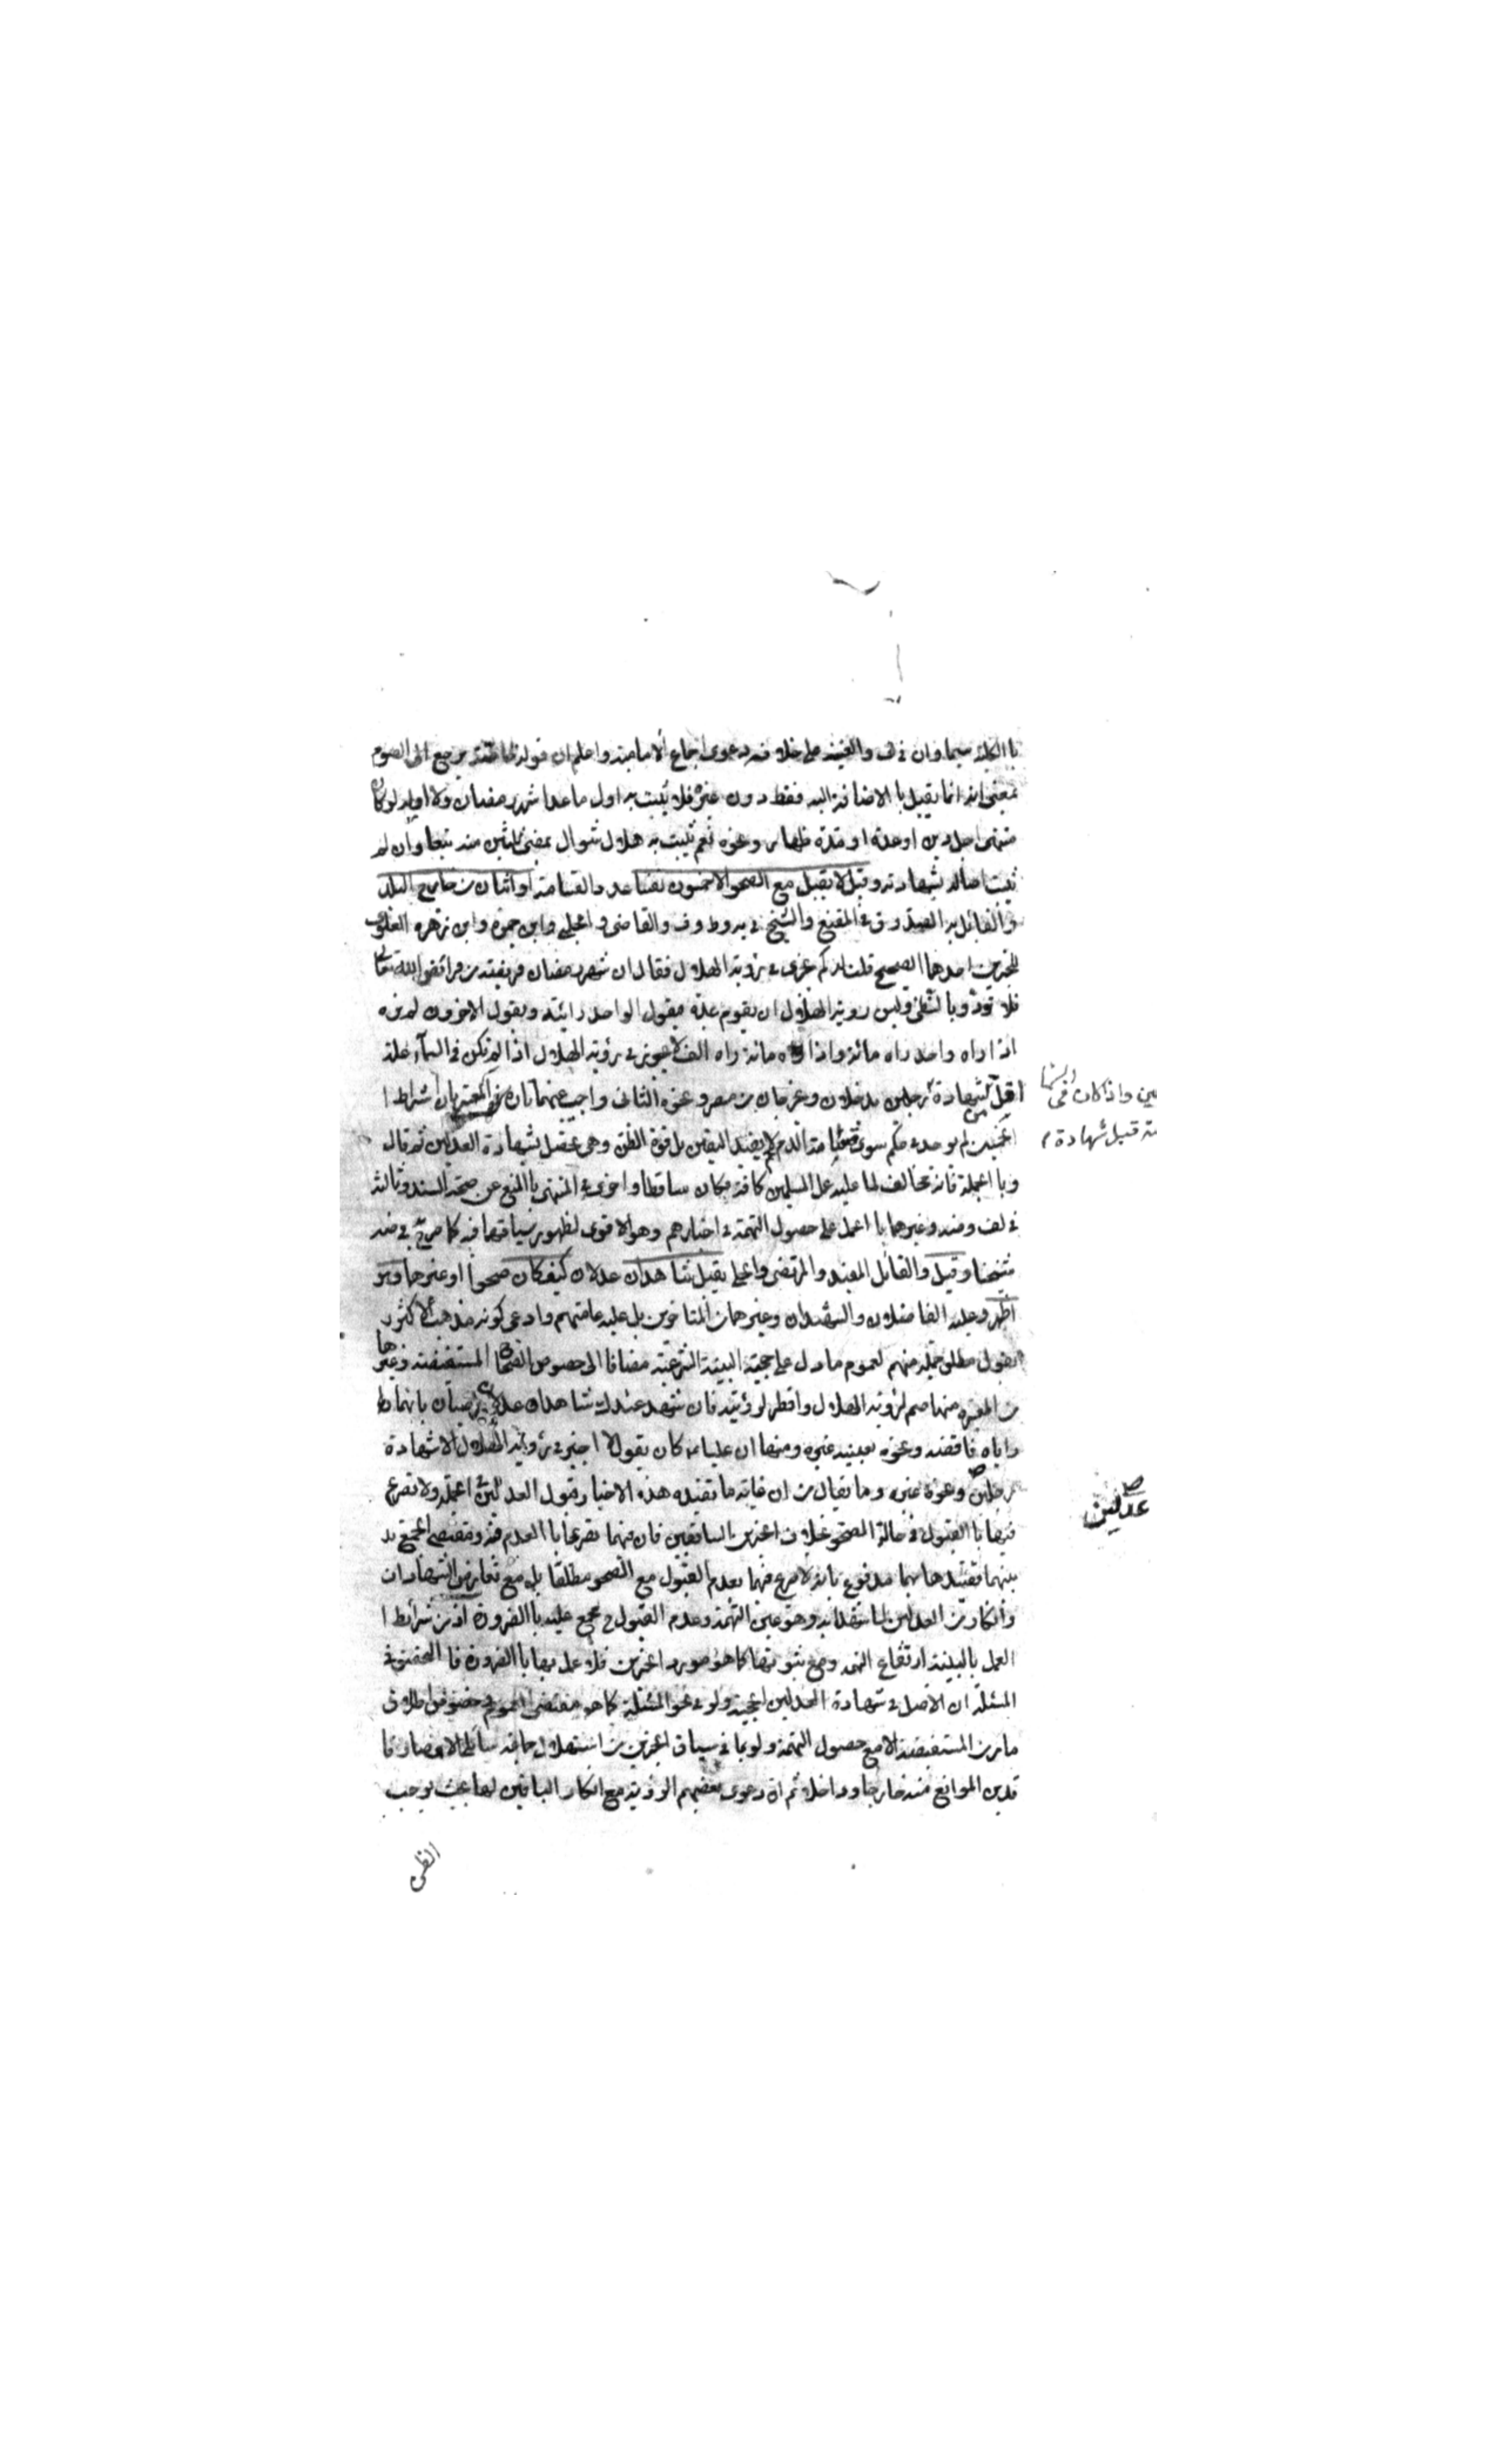 بالكلية سيما وان في ف والغنية على خلافه دعوى اجماع الامامية واعلم ان قوله خاصة يرجع الى الصوم
بمعنى انه انما يقبل بالاضافة اليه فقط دون غيره فلا يثبت به اول ما عدا شهر رمضان ولا لو كان
منتهى اجل دين او عدة او مدة ظهار ونحوه نعم يثبت به هلال شوال بمضى ثلثين منه تبعا وان لم
يثبت اصالة بشهادته وقيل لا يقبل مع الصحو الا خمسون نفسا عدد القسامة او اثنان من خارج البلد
والقائل به الصدوق في المقنع والشيخ في يه وط وف والقاضى و الحلبى وابن حمزة وابن زهره
للخبرين احدهما الصحيح قلت له كم يجزى في رؤية الهلال فقال ان شهر رمضان فريضة من فرائض الله تعالى
فلا تؤدوا بالتظنى وليس روية الهلال ان يقوم عدة فيقول الواحد رايته ويقول الاخرون لم نره
اذا راه واحد راه مائة واذا راه مائة راه الف لا يجوز في رؤية الهلال اذا لم تكن في السماء علة
اقل شهادة رجلين يدخلون ويخرجان من مصر ونحوه الثانى واجيب عنهما تارة في المعتبر بان اشتراط ا
لخمسين لم يوجد في حكم سوى قسامة الدم ثم لا يفيد اليقين بل قوة الظن وهى تحصل بشهادة العدلين ثم قال
وبالجملة فانه مخالف لما عليه عمل المسلمين كافة فكان ساقطا واخرى في المنتهى بالمنع عن صحة السند وثالثة
في لف ومنه وغيرهما بالحمل على حصول التهمة في اخبارهم وهو الاقوى لظهور سياقهما فيه كما صرح في ضه
شيخنا وقيل والقائل المفيد والمرتضى والحلى يقبل شاهدان عدلان كيف كان صحوا او غيرها وهو
اظهر وعليه الفاضلان والشهيدان وغيرهما من المتاخرين بل عليه عامتهم وادعى كونه مذهب الاكثر
بقول مطلق جملة منهم لعموم ما دل على حجية البينة الشرعية مضافا الى خصوص الصحاح المستفيضة وغيرها
من المعتبرة منها صم لرؤية الهلال وافطر لرؤيته فان شهد عندك شاهدان عدلان مرضيان بانهما
راياه فاقضه ونحوه بعينه غيره ومنها ان عليا عه كان يقول لا اجيز في رؤية الهلال الا شهادة
رجلين ونحوه غيره وما يقال من ان غاية ما تفيده هذه الاخبار قبول العدلين في الجملة ولا تصريح
فيها بالقبول في حالة الصحو بخلاف الخبرين السابقين فان فيهما تصريحا بالعدم فيه ومقتضى الجمع
بينهما تقييدها بهما مدفوع بانه لا تصريح فيهما بعدم القبول مع الصحو مطلقا بل مع تعارض الشهادات
وانكار من العدلين لما شهدا به وهو عين التهمة وعدم القبول ح مجمع عليه بالضرورة اذ من شرائط ا
لعمل بالبينة ارتفاع التهمة ومع ثبوتها كما هو مورد الخبرين فلا عمل بها بالضرورة فالتحقيق في
المسئلة ان الاصل في شهادة العدلين الحجية ولو في نحو المسئلة كما هو مقتضى العموم وخصوص اطلاق
ما مر من المستفيضة الا مع حصول التهمة ولو بما في سياق الخبرين من استهلال جماعة سالمى الابصار فا
قدين الموانع منه خارجا وداخلا ثم ان دعوى بعضهم الرؤية مع انكار الباقين لها بحيث يوجب
الظن
واذا كان فى السما
قبل شهادة
عدلين